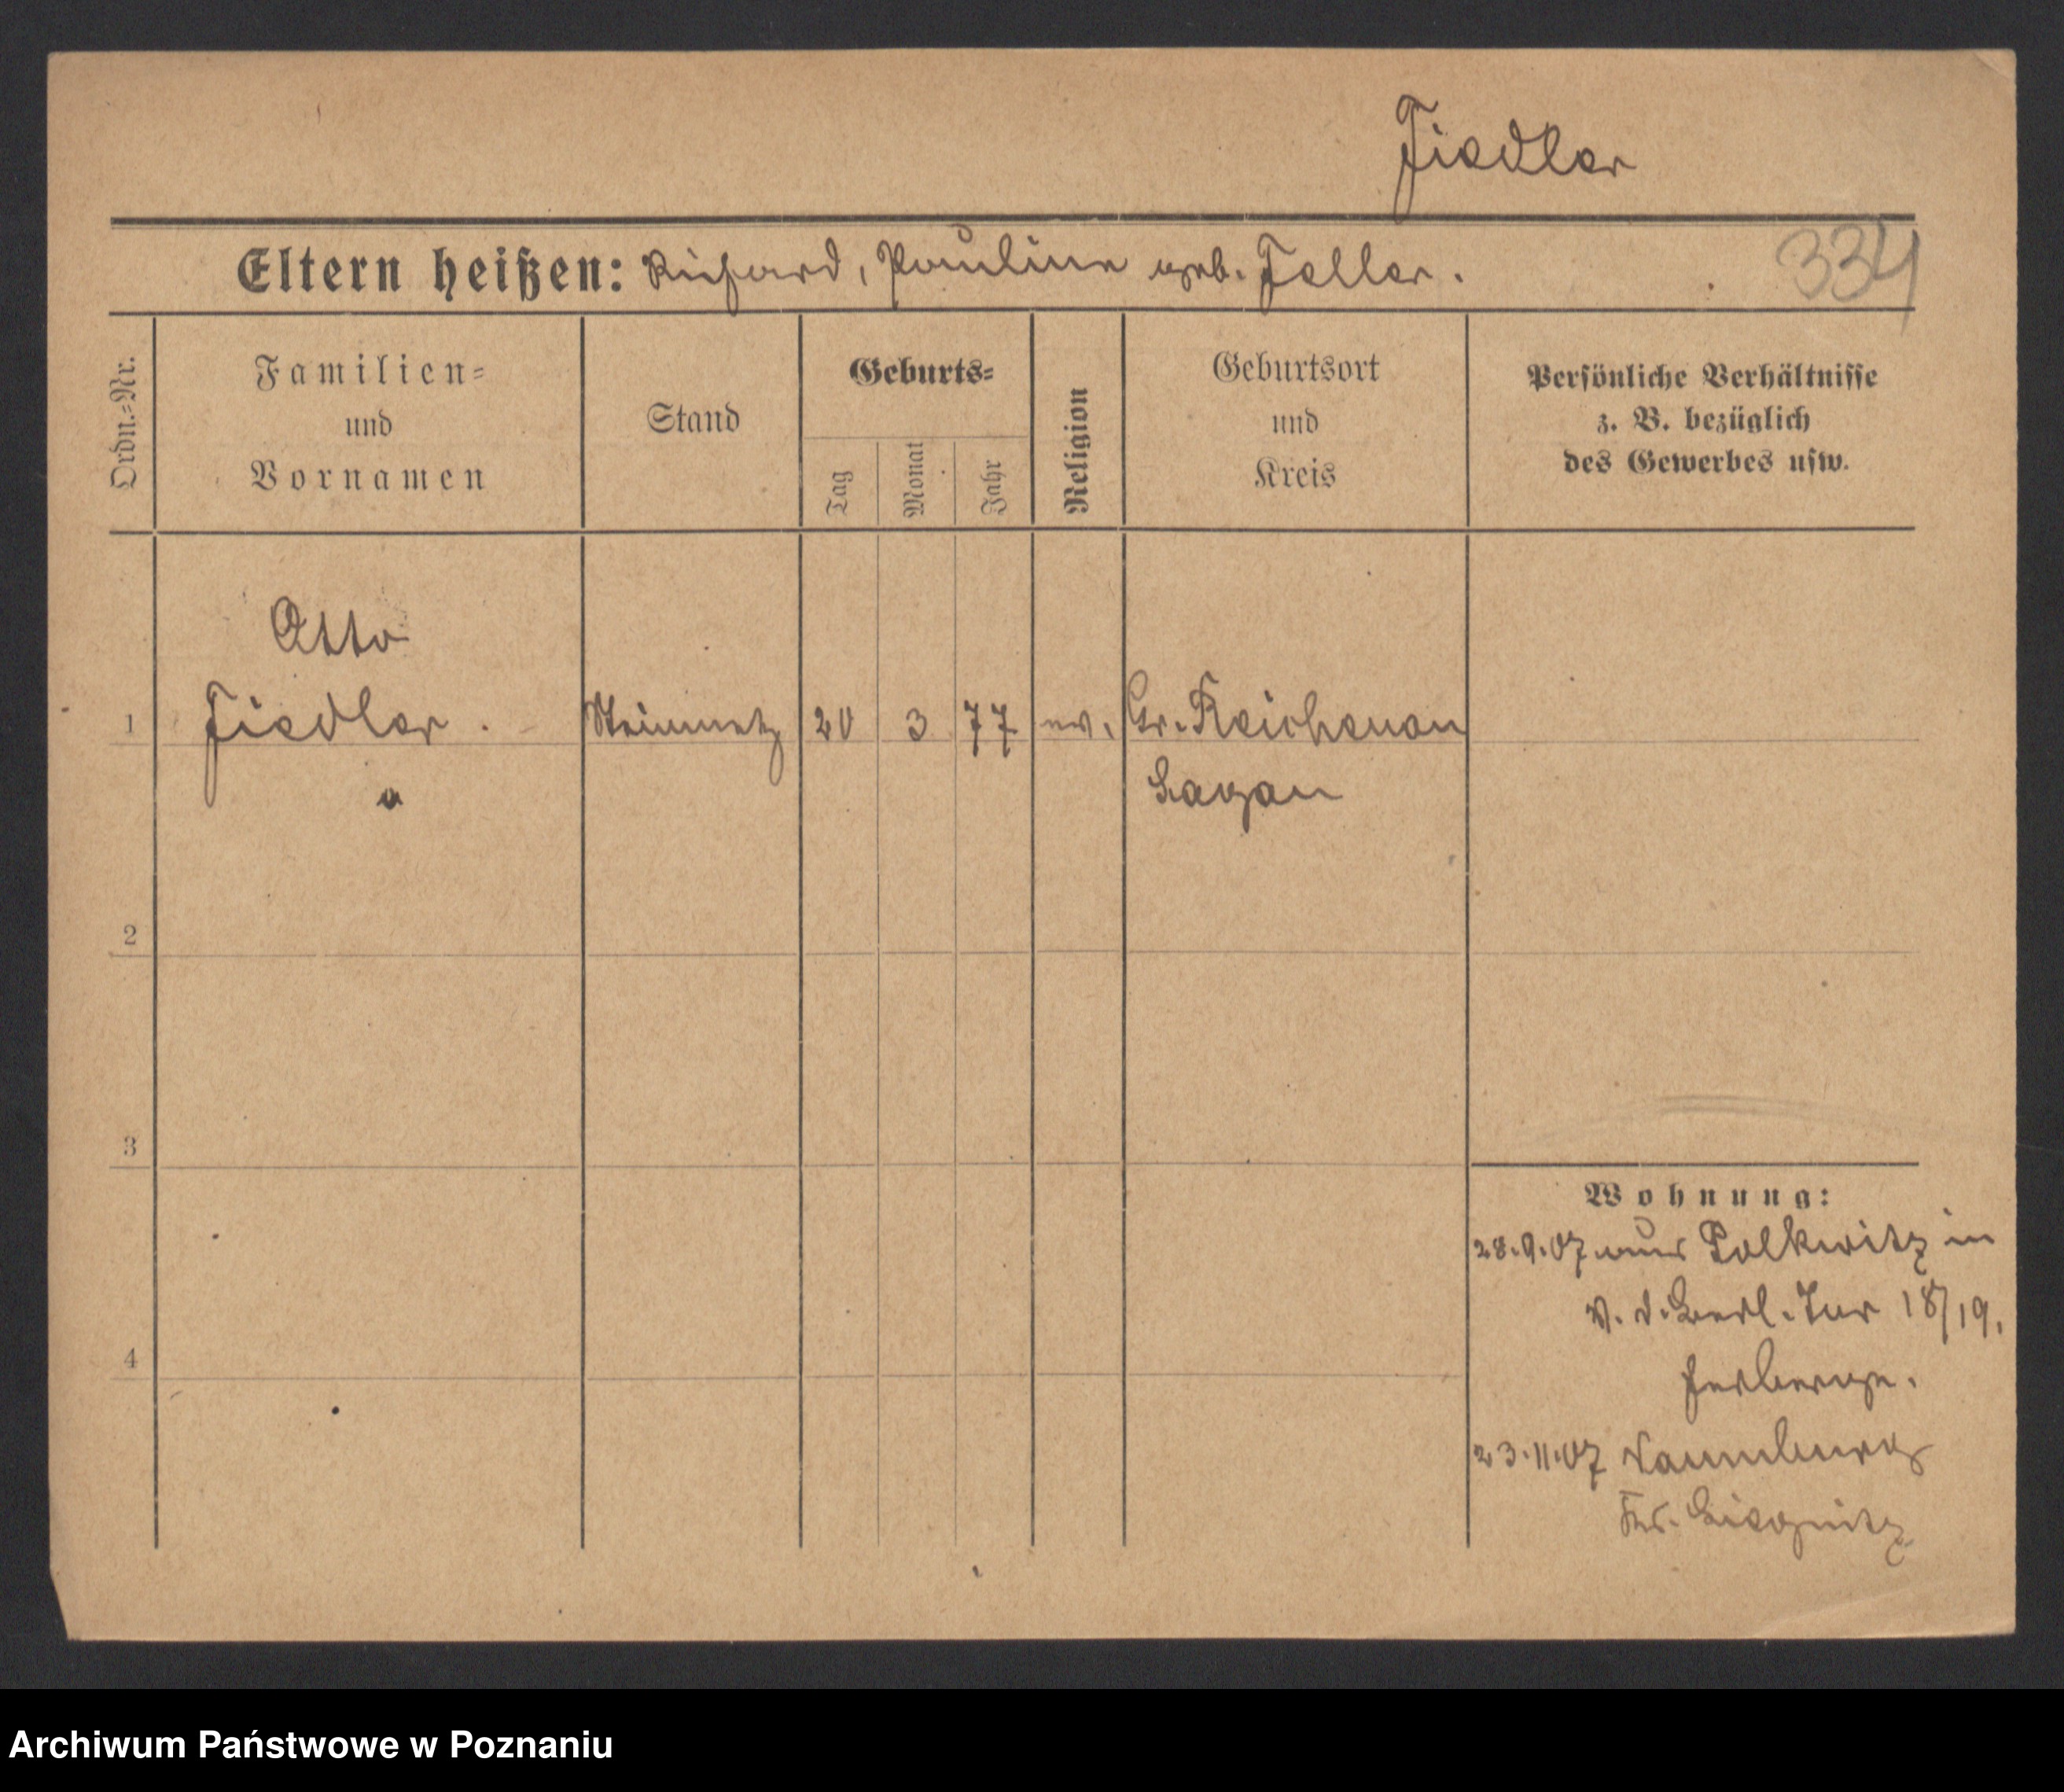 Fiedler
Eltern heißen: Richard, Pauline geb. Feller.
334
Ordn.-Nr.
Familien-
und
Vornamen
Stand
Geburts-
Tag
Monat
Jahr
Religion
Geburtsort
und
Kreis
Persönliche Verhältnisse
z. B. bezüglich
des Gewerbes usw.
Otto
1 Fiedler. Steinmetz 20 3 77 ev. Gr. Reichenau
Sagan
2
3
4
Wohnung:
28.9.07 aus Polkwitz in
V. d. Berl. Tor 18/19.
Herberge.
23.11.07
Kr. Liegnitz
Archiwum Państwowe w Poznaniu